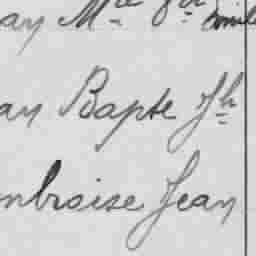 an Mie
an Bapte Jh
mbroise Jean